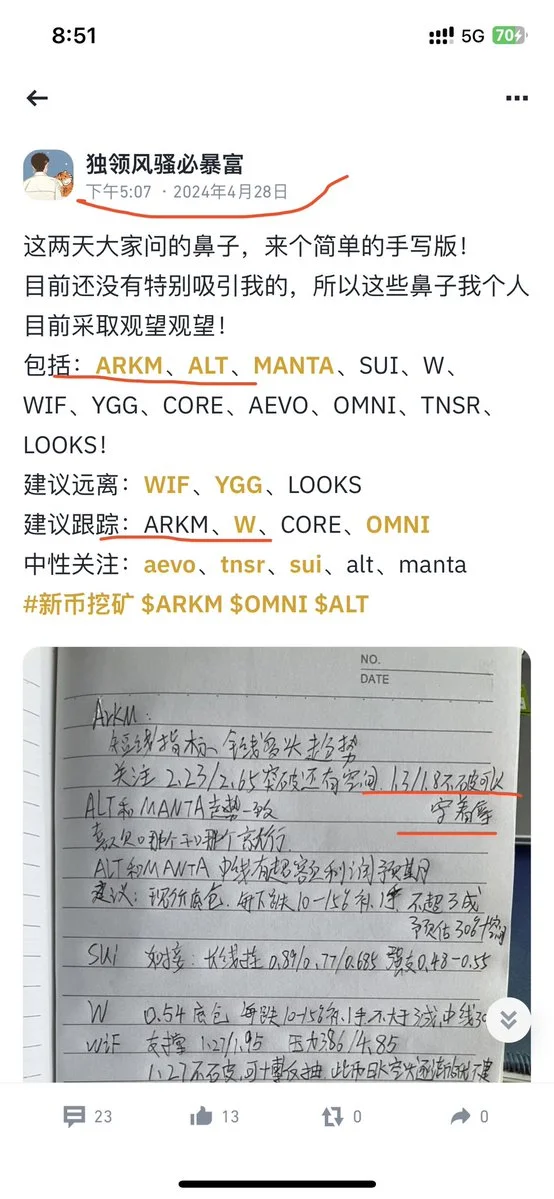 8:51
5G
70
独领风骚必暴富
下午5:07 · 2024年4月28日
这两天大家问的鼻子，来个简单的手写版！
目前还没有特别吸引我的，所以这些鼻子我个人
目前采取观望观望！
包括：ARKM、ALT、MANTA、SUI、W、
WIF、YGG、CORE、AEVO、OMNI、TNSR、
LOOKS！
建议远离：WIF、YGG、LOOKS
建议跟踪：ARKM、W、CORE、OMNI
中性关注：aevo、tnsr、sui、alt、manta
#新币挖矿 $ARKM $OMNI $ALT
NO.
DATE
ArKM:
短线指标、
关注 2.23/2.65突破还有空间 1.3/1.8不破可以
ALT和MANTA走势一致
ALT和MANTA 中线有超额利润预期
建议: 现价底仓. 每下跌10-15%补1手 不超3成
预估30%+空间
SUi 如接: 长线挂 0.89/0.77/0.685 强支0.48-0.55
W 0.54底仓 每跌10-15%补1手不大于3成,中线30
WiF 支撑 1.27/1.95 压力3.86/4.85
1.27不破,可博反抽.
23
13
0
0